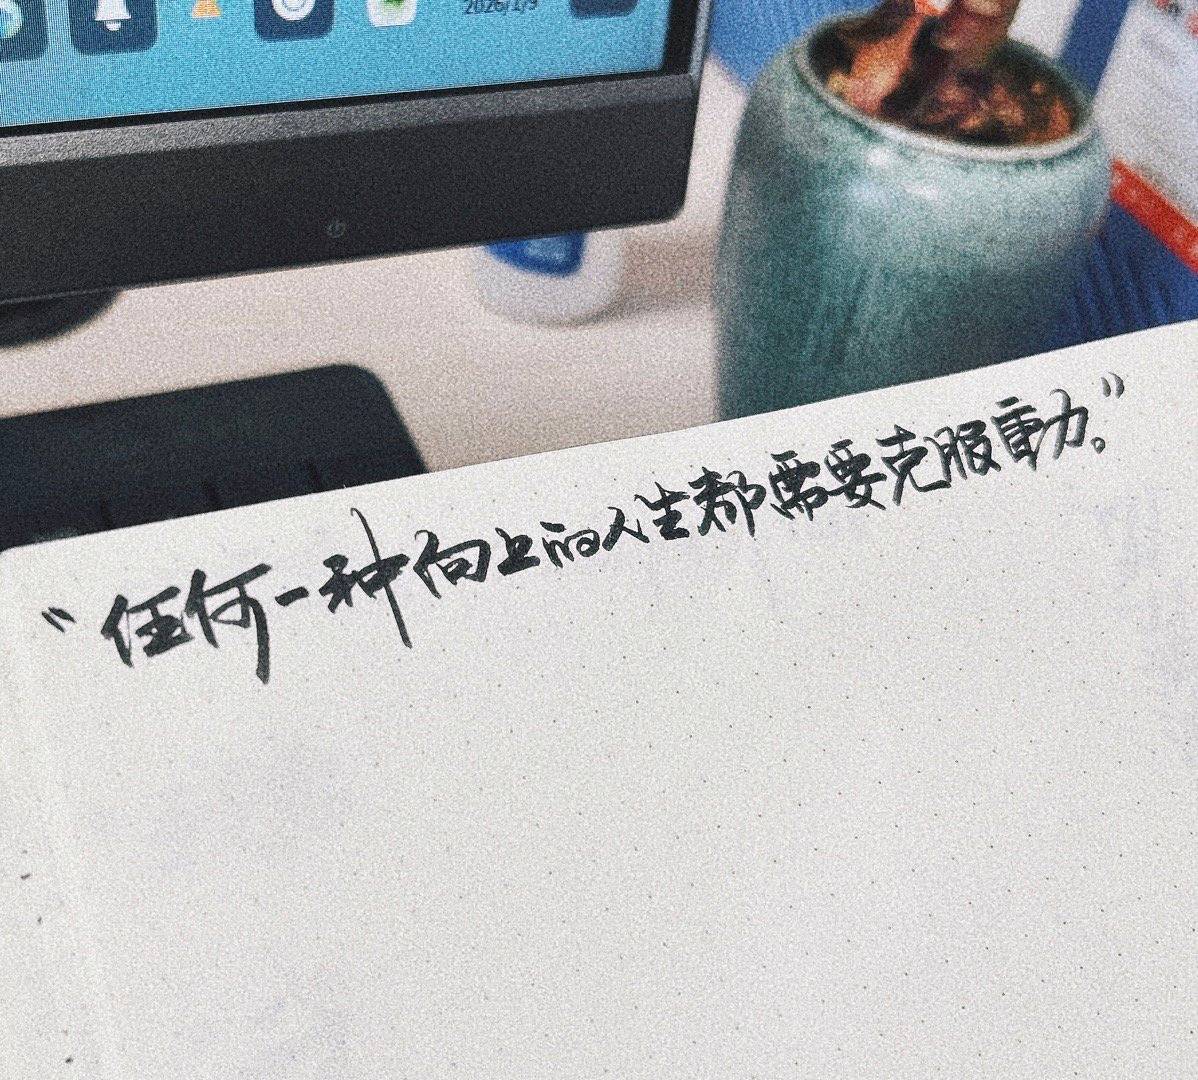 2026/1/9
“任何一种向上的人生都需要克服重力。”